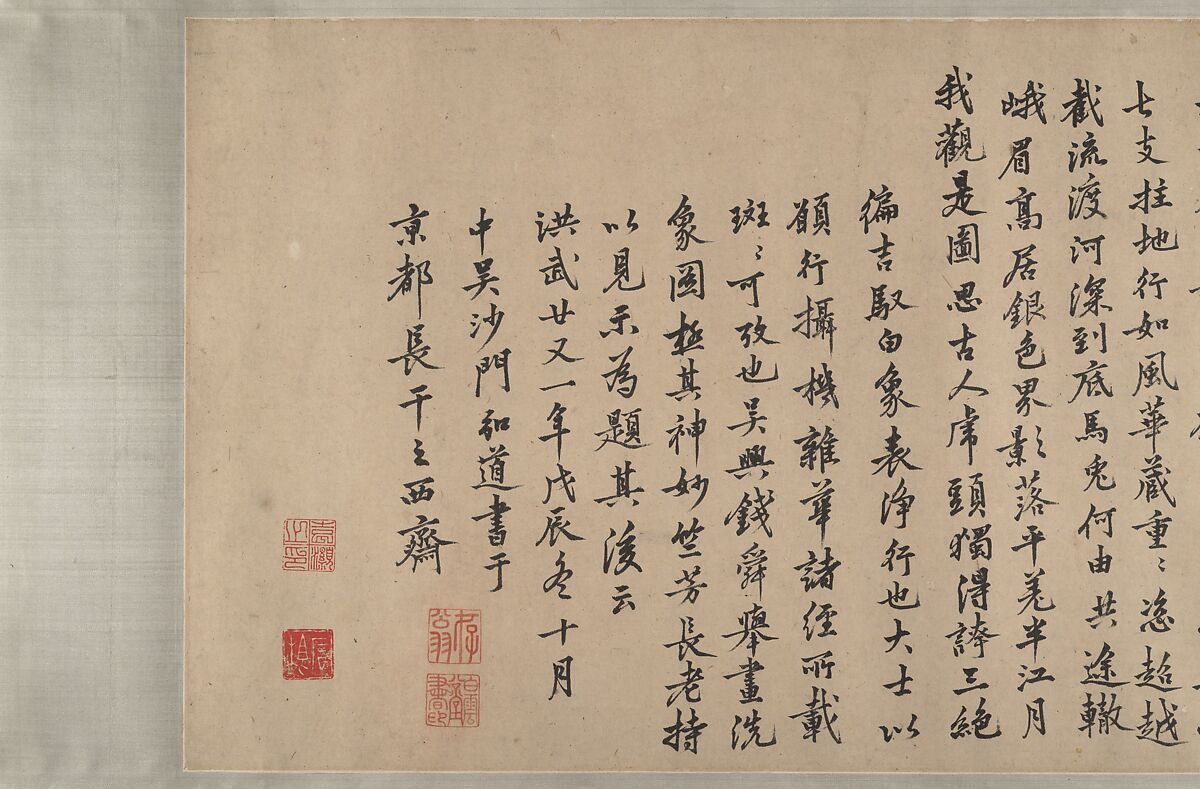 七支拄地行如風華藏重〻恣超越
截流渡河深到底馬兎何由共途轍
峨眉高居銀色界影落平羌半江月
我觀是圖思古人席頭獨得誇三絶
徧吉馭白象表淨行也大士以
願行攝機雜華諸經所載
斑〻可攷也吴興錢舜舉畫洗
象圖極其神妙竺芳長老持
以見示為題其後云
洪武廿又一年戊辰冬十月
中吴沙門知道書于
京都長干之西齋